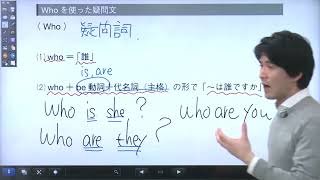 Who を使った疑問文
(Who) 疑問詞
(1) who =「誰」
is, are
(2) who + be 動詞 + 代名詞(主格)の形で「〜は誰ですか」
Who is she ? who are you
Who are they ?